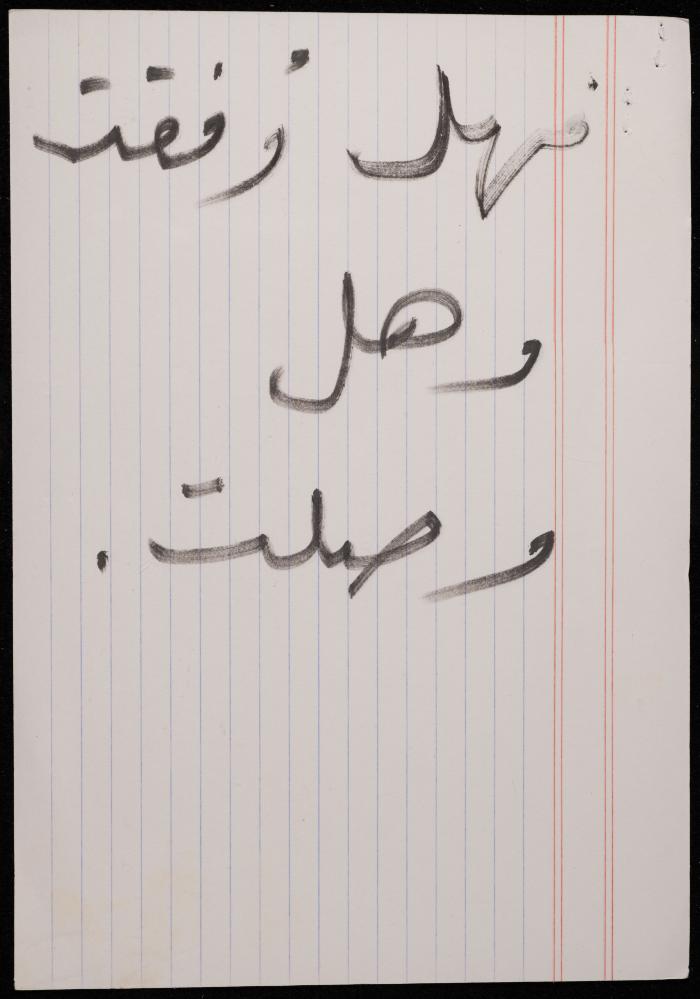 فهل وُفقت
وهل
وصلت.